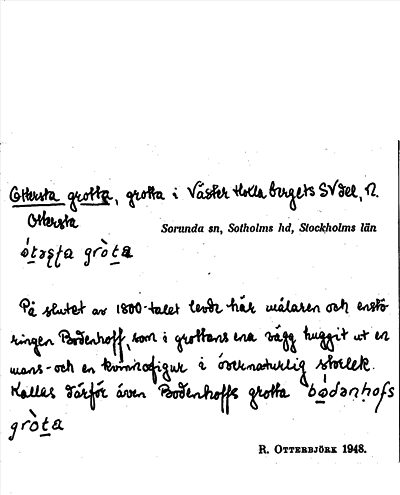 Ottersta grotta, grotta i Väster Hollabergets SV del, N.
Ottersta
Sorunda sn, Sotholms hd, Stockholms län
grò̀ta
På slutet av 1800-talet levde här målaren och enstö-
ringen Bodenhoff, som i grottans ena vägg huggit ut en
mans- och en kvinnofigur i övernaturlig storlek.
Kallas därför även Bodenhoffs grotta
gròta
R. OTTERBJÖRK 1948.